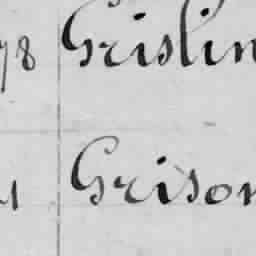 78 Grislin
Grison